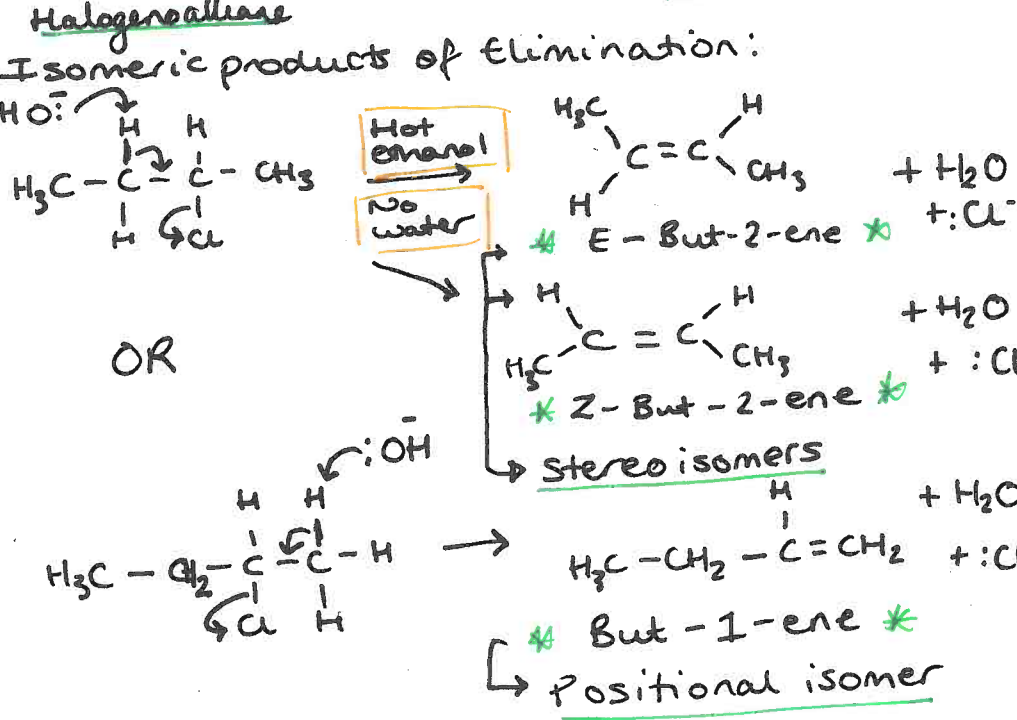 Halogenoalkane
Isomeric products of Elimination:
HO:⁻
H H
H₃C – C – C – CH₃
H Cl
Hot
ethanol
No
water
H₃C H
C = C
H CH₃
+ H₂O
+ :Cl⁻
* E – But-2-ene *
H H
C = C
H₃C CH₃
+ H₂O
+ :Cl
* Z – But – 2 – ene *
Stereoisomers
OR
:OH⁻
H H
H₃C – CH₂ – C – C – H
Cl H
H
H₃C – CH₂ – C = CH₂
+ H₂O
+ :Cl
* But – 1 – ene *
Positional isomer